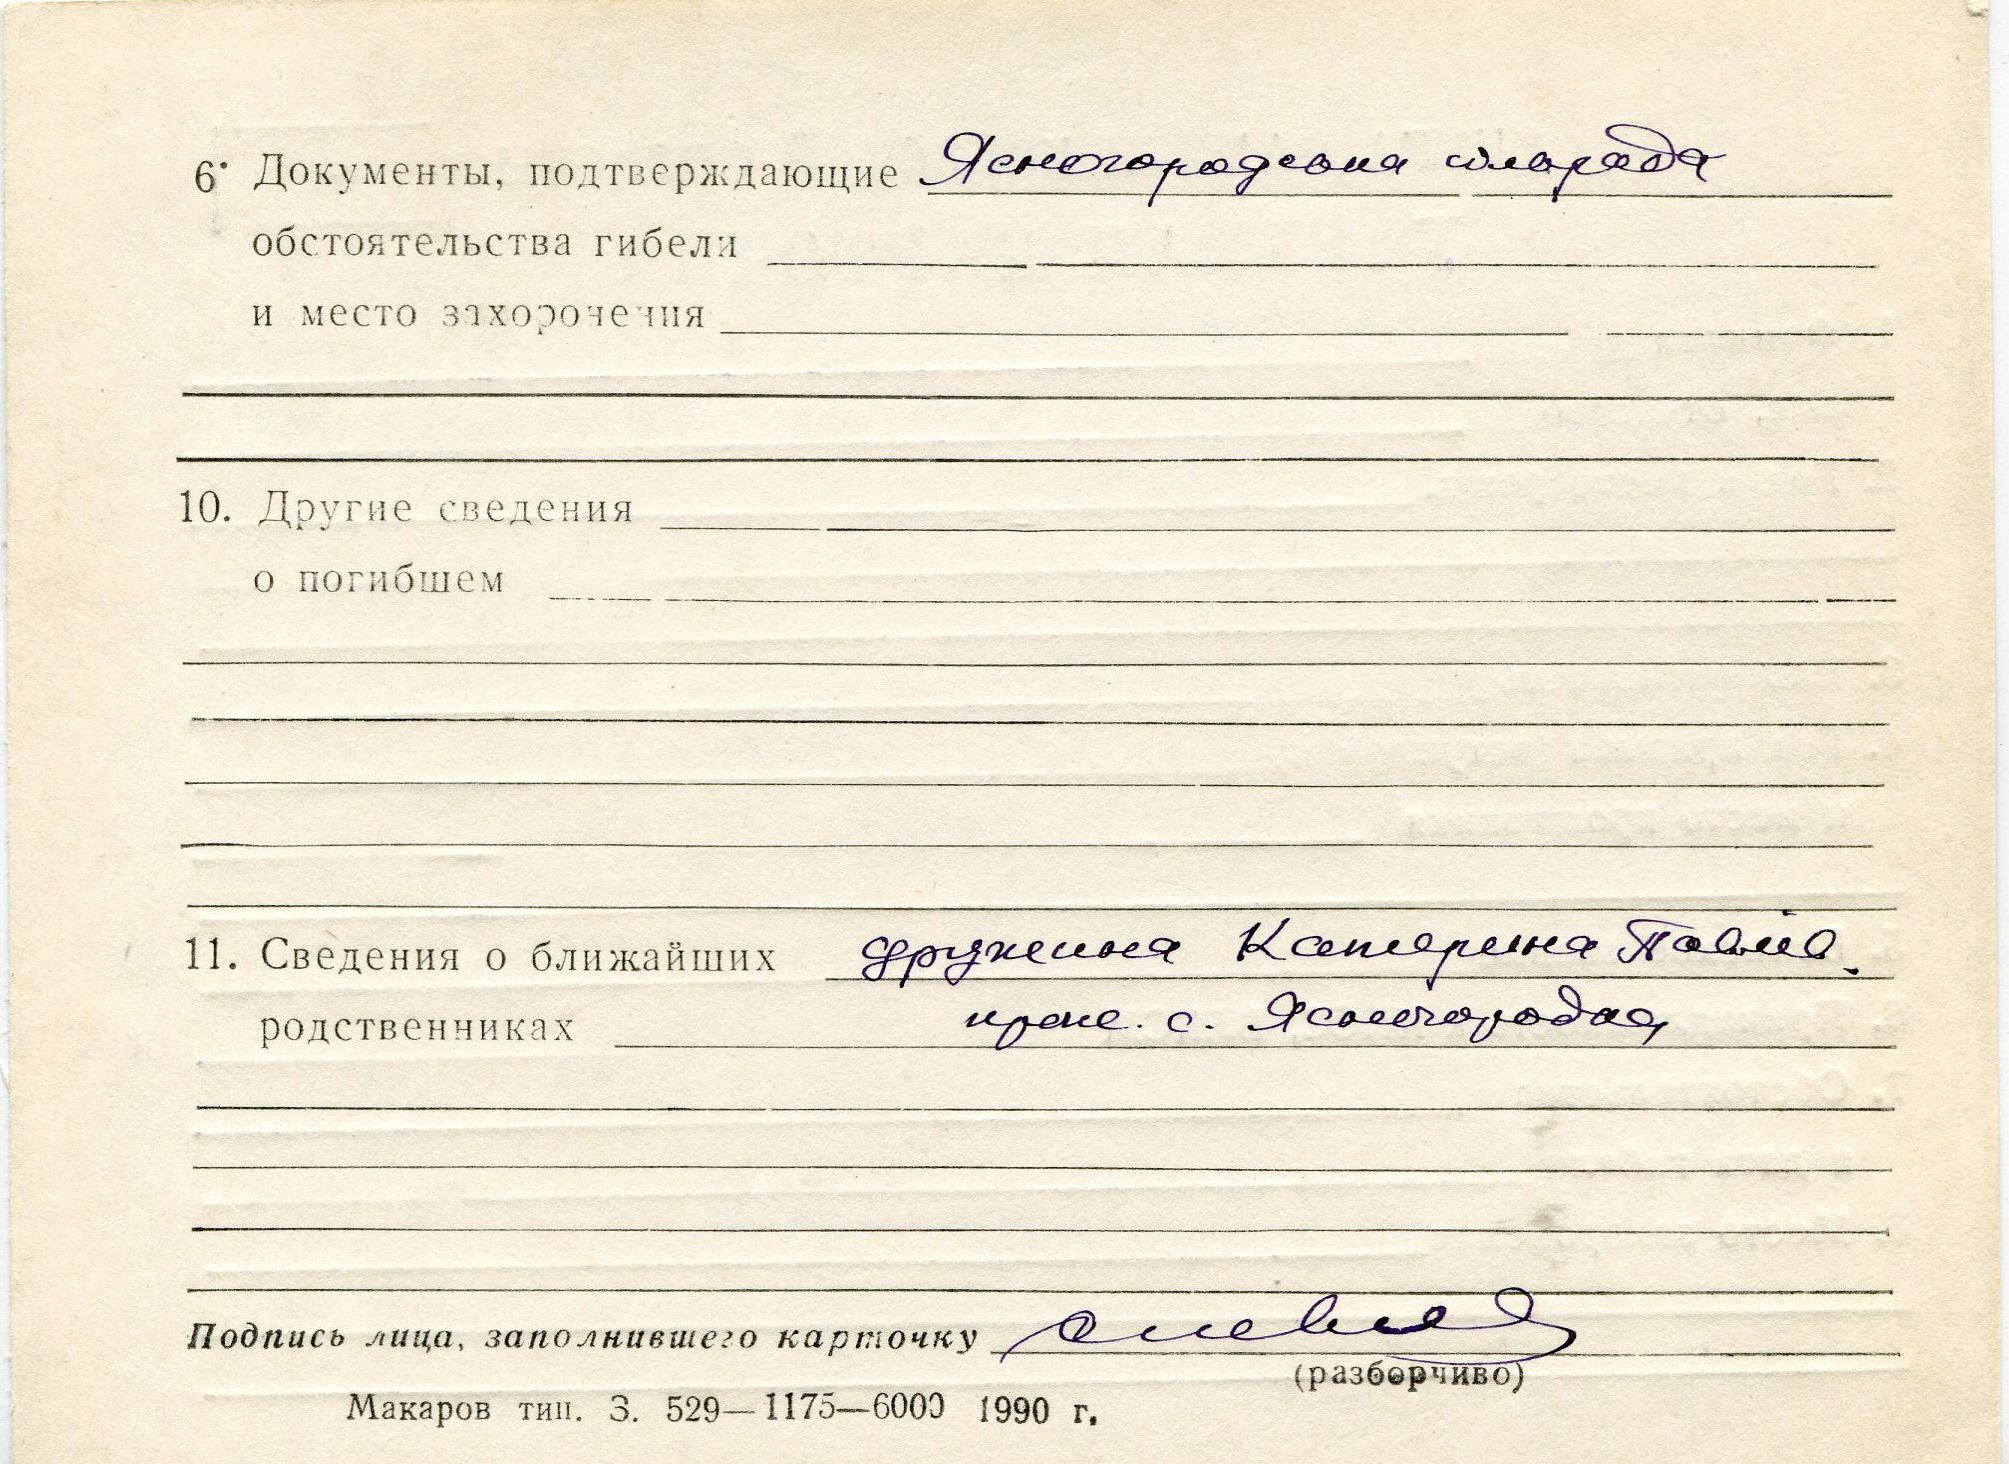 6. Документы, подтверждающие Ясногородська сільрада
обстоятельства гибели
и место захоронения
10. Другие сведения
о погибшем
11. Сведения о ближайших дружина Катерина Павлів.
родственниках прож. с. Ясногородка
Подпись лица, заполнившего карточку
(разборчиво)
Макаров тип. З. 529—1175—6000 1990 г.